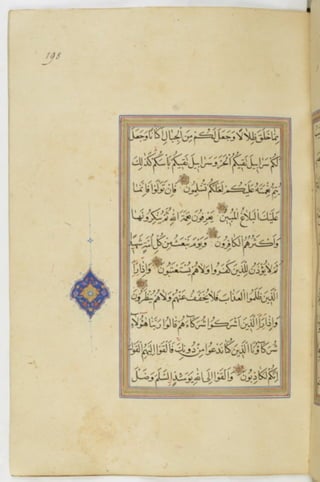 198
مِمَّا خَلَقَ ظِلَالًا وَجَعَلَ لَكُمْ مِنَ الْجِبَالِ أَكْنَانًا وَجَعَلَ
لَكُمْ سَرَابِيلَ تَقِيكُمُ الْحَرَّ وَسَرَابِيلَ تَقِيكُمْ بَأْسَكُمْ كَذَلِكَ
يُتِمُّ نِعْمَتَهُ عَلَيْكُمْ لَعَلَّكُمْ تُسْلِمُونَ فَإِنْ تَوَلَّوْا فَإِنَّمَا
عَلَيْكَ الْبَلَاغُ الْمُبِينُ يَعْرِفُونَ نِعْمَةَ اللَّهِ ثُمَّ يُنْكِرُونَهَا
وَأَكْثَرُهُمُ الْكَافِرُونَ وَيَوْمَ نَبْعَثُ مِنْ كُلِّ أُمَّةٍ شَهِيدًا
ثُمَّ لَا يُؤْذَنُ لِلَّذِينَ كَفَرُوا وَلَا هُمْ يُسْتَعْتَبُونَ وَإِذَا رَأَى
الَّذِينَ ظَلَمُوا الْعَذَابَ فَلَا يُخَفَّفُ عَنْهُمْ وَلَا هُمْ يُنْظَرُونَ
وَإِذَا رَأَى الَّذِينَ أَشْرَكُوا شُرَكَاءَهُمْ قَالُوا رَبَّنَا هَؤُلَاءِ
شُرَكَاؤُنَا الَّذِينَ كُنَّا نَدْعُوا مِنْ دُونِكَ فَأَلْقَوْا إِلَيْهِمُ الْقَوْلَ
إِنَّكُمْ لَكَاذِبُونَ وَأَلْقَوْا إِلَى اللَّهِ يَوْمَئِذٍ السَّلَمَ وَضَلَّ